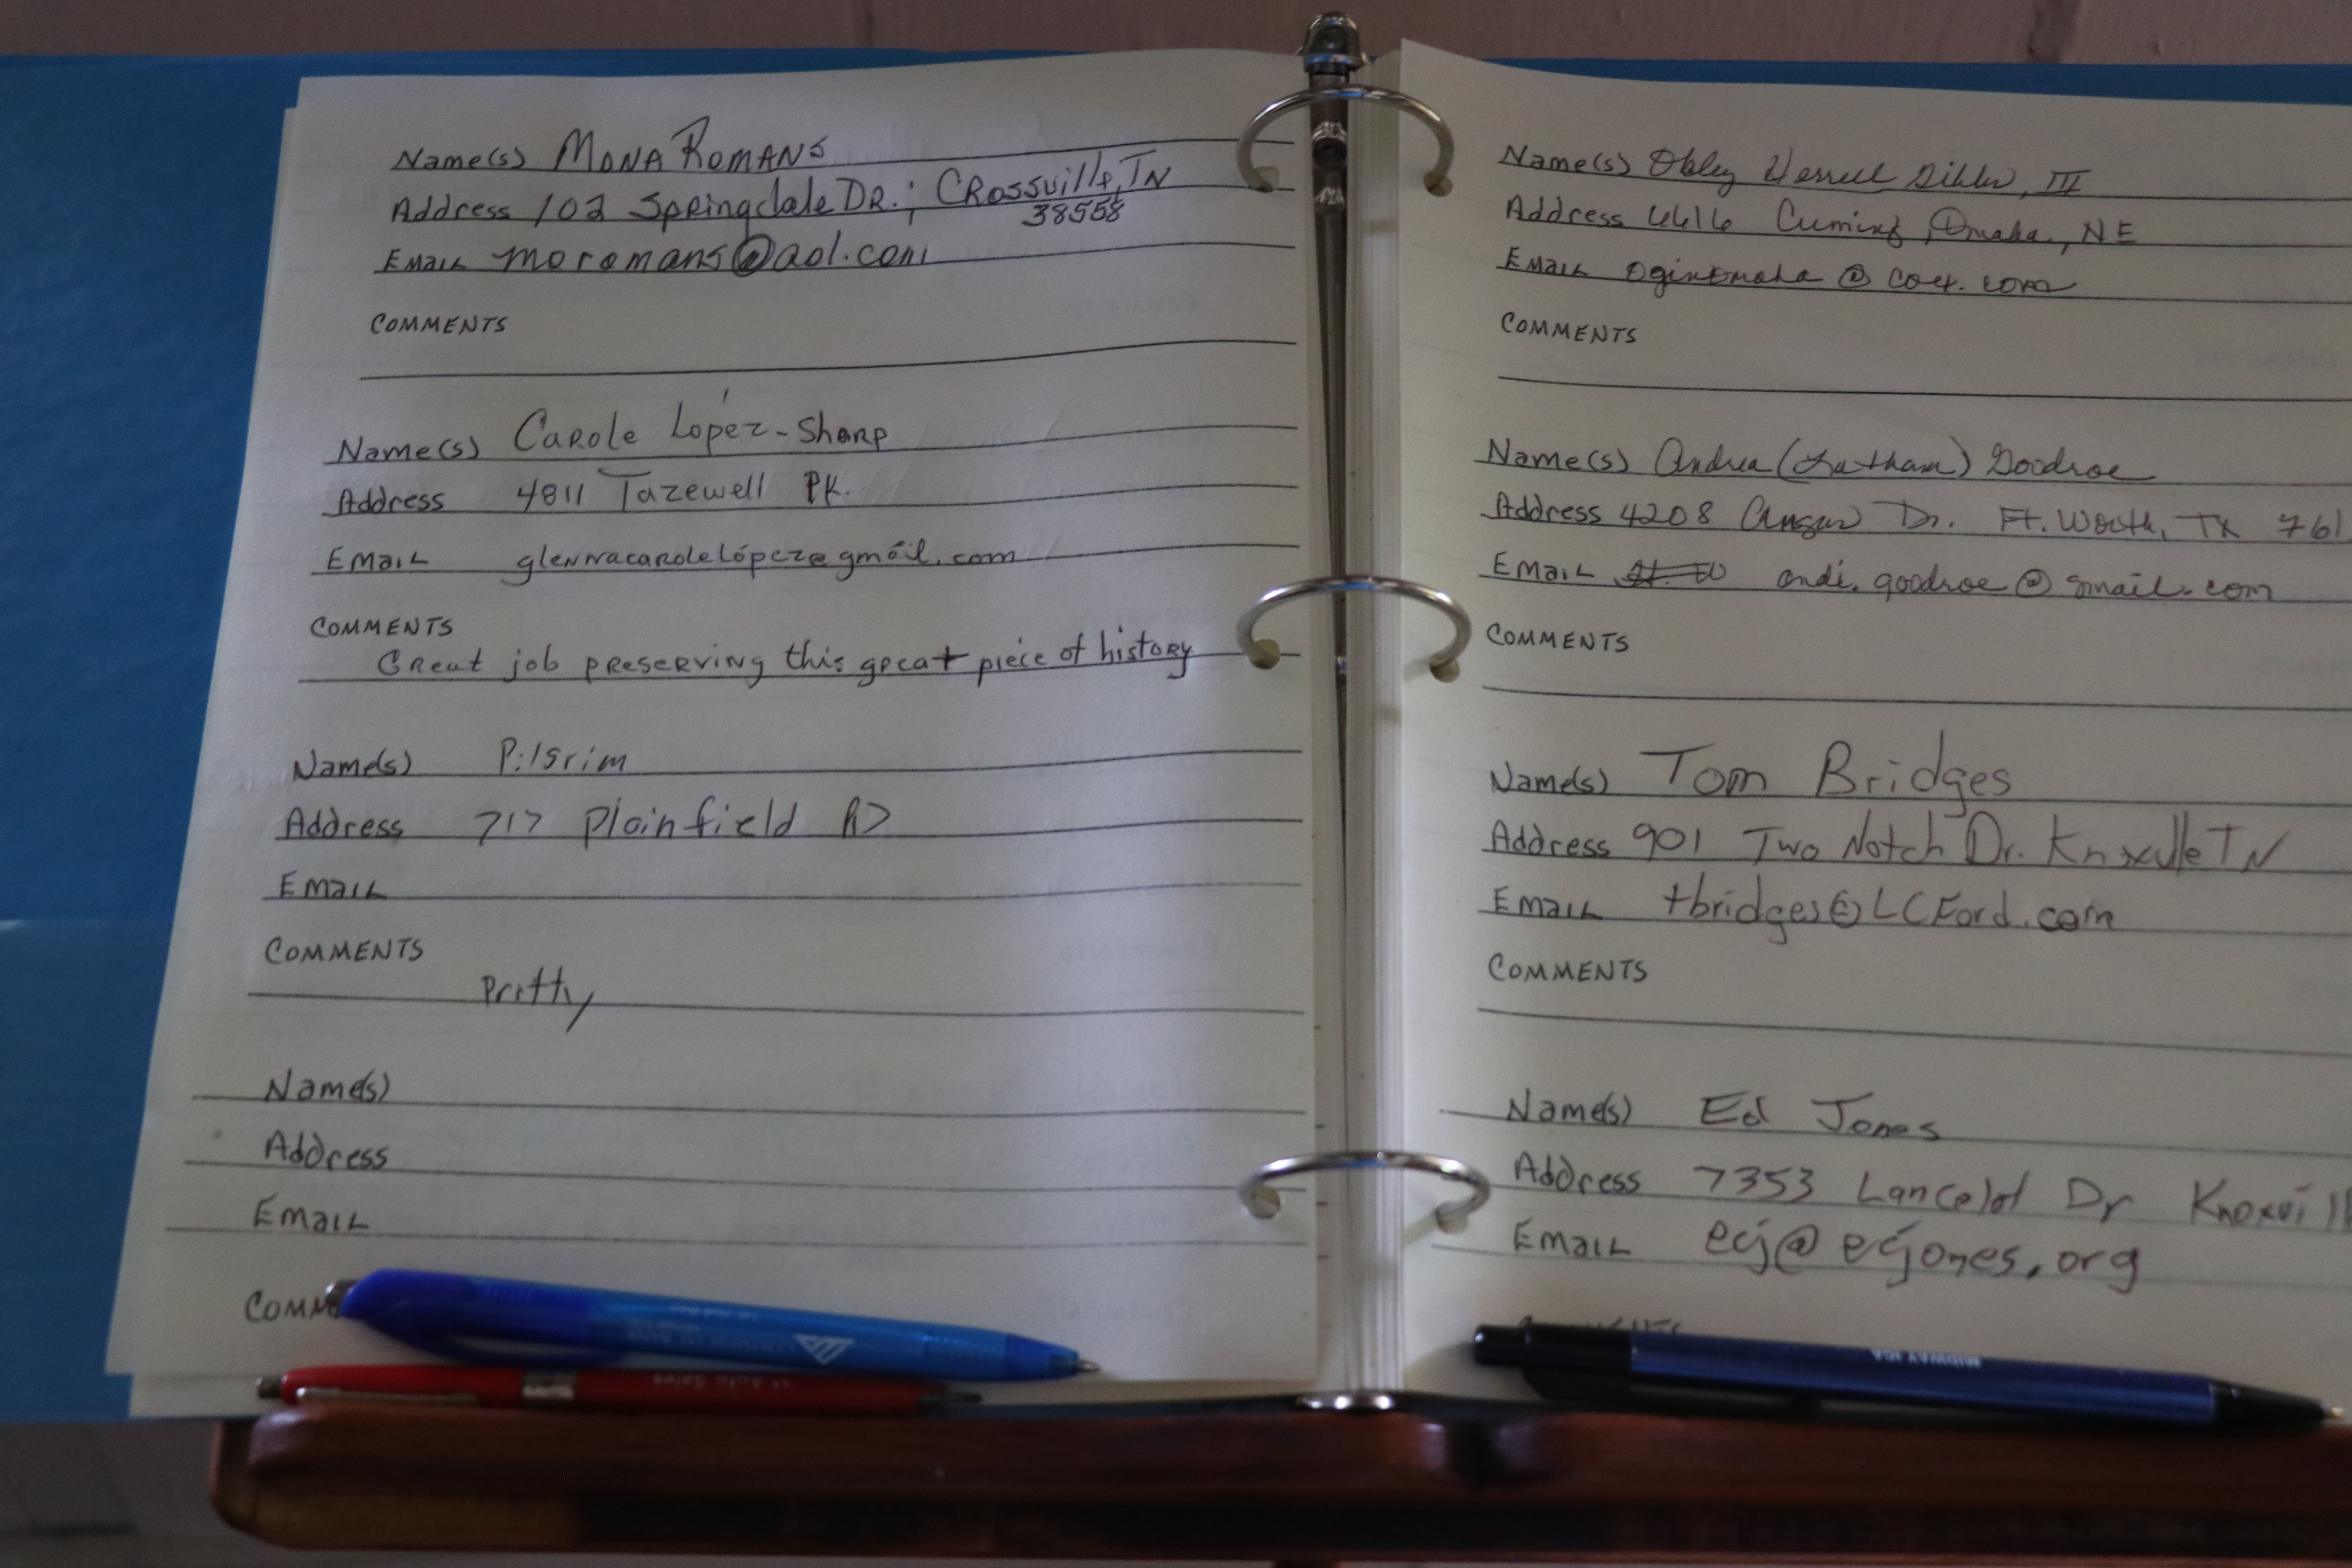 Name(s) Mona Romans
Address 102 Springdale DR.; Crossville, TN
38558
Email moromans@aol.com
COMMENTS
Name(s) Carole López-Sharp
Address 4811 Tazewell PK.
Email glennacarolelópez@gmail.com
COMMENTS
Great job preserving this great piece of history
Name(s) Pilgrim
Address 717 Plainfield RD
Email
COMMENTS
Pretty
Name(s)
Address
Email
COMM
Name(s) III
Address 6616 Cuming, Omaha, NE
Email oginomaha@cox.com
COMMENTS
Name(s) Andrea (Latham) Goodroe
Address 4208 Dr. Ft. Worth, TX 761
Email andi.goodroe@gmail.com
COMMENTS
Name(s) Tom Bridges
Address 901 Two Notch Dr. Knoxville TN
Email tbridges@LCFord.com
COMMENTS
Name(s) Ed Jones
Address 7353 Lancelot Dr Knoxvill
Email ecj@ecjones.org
COMMENTS
Auto Sales
MIDWAY IGA